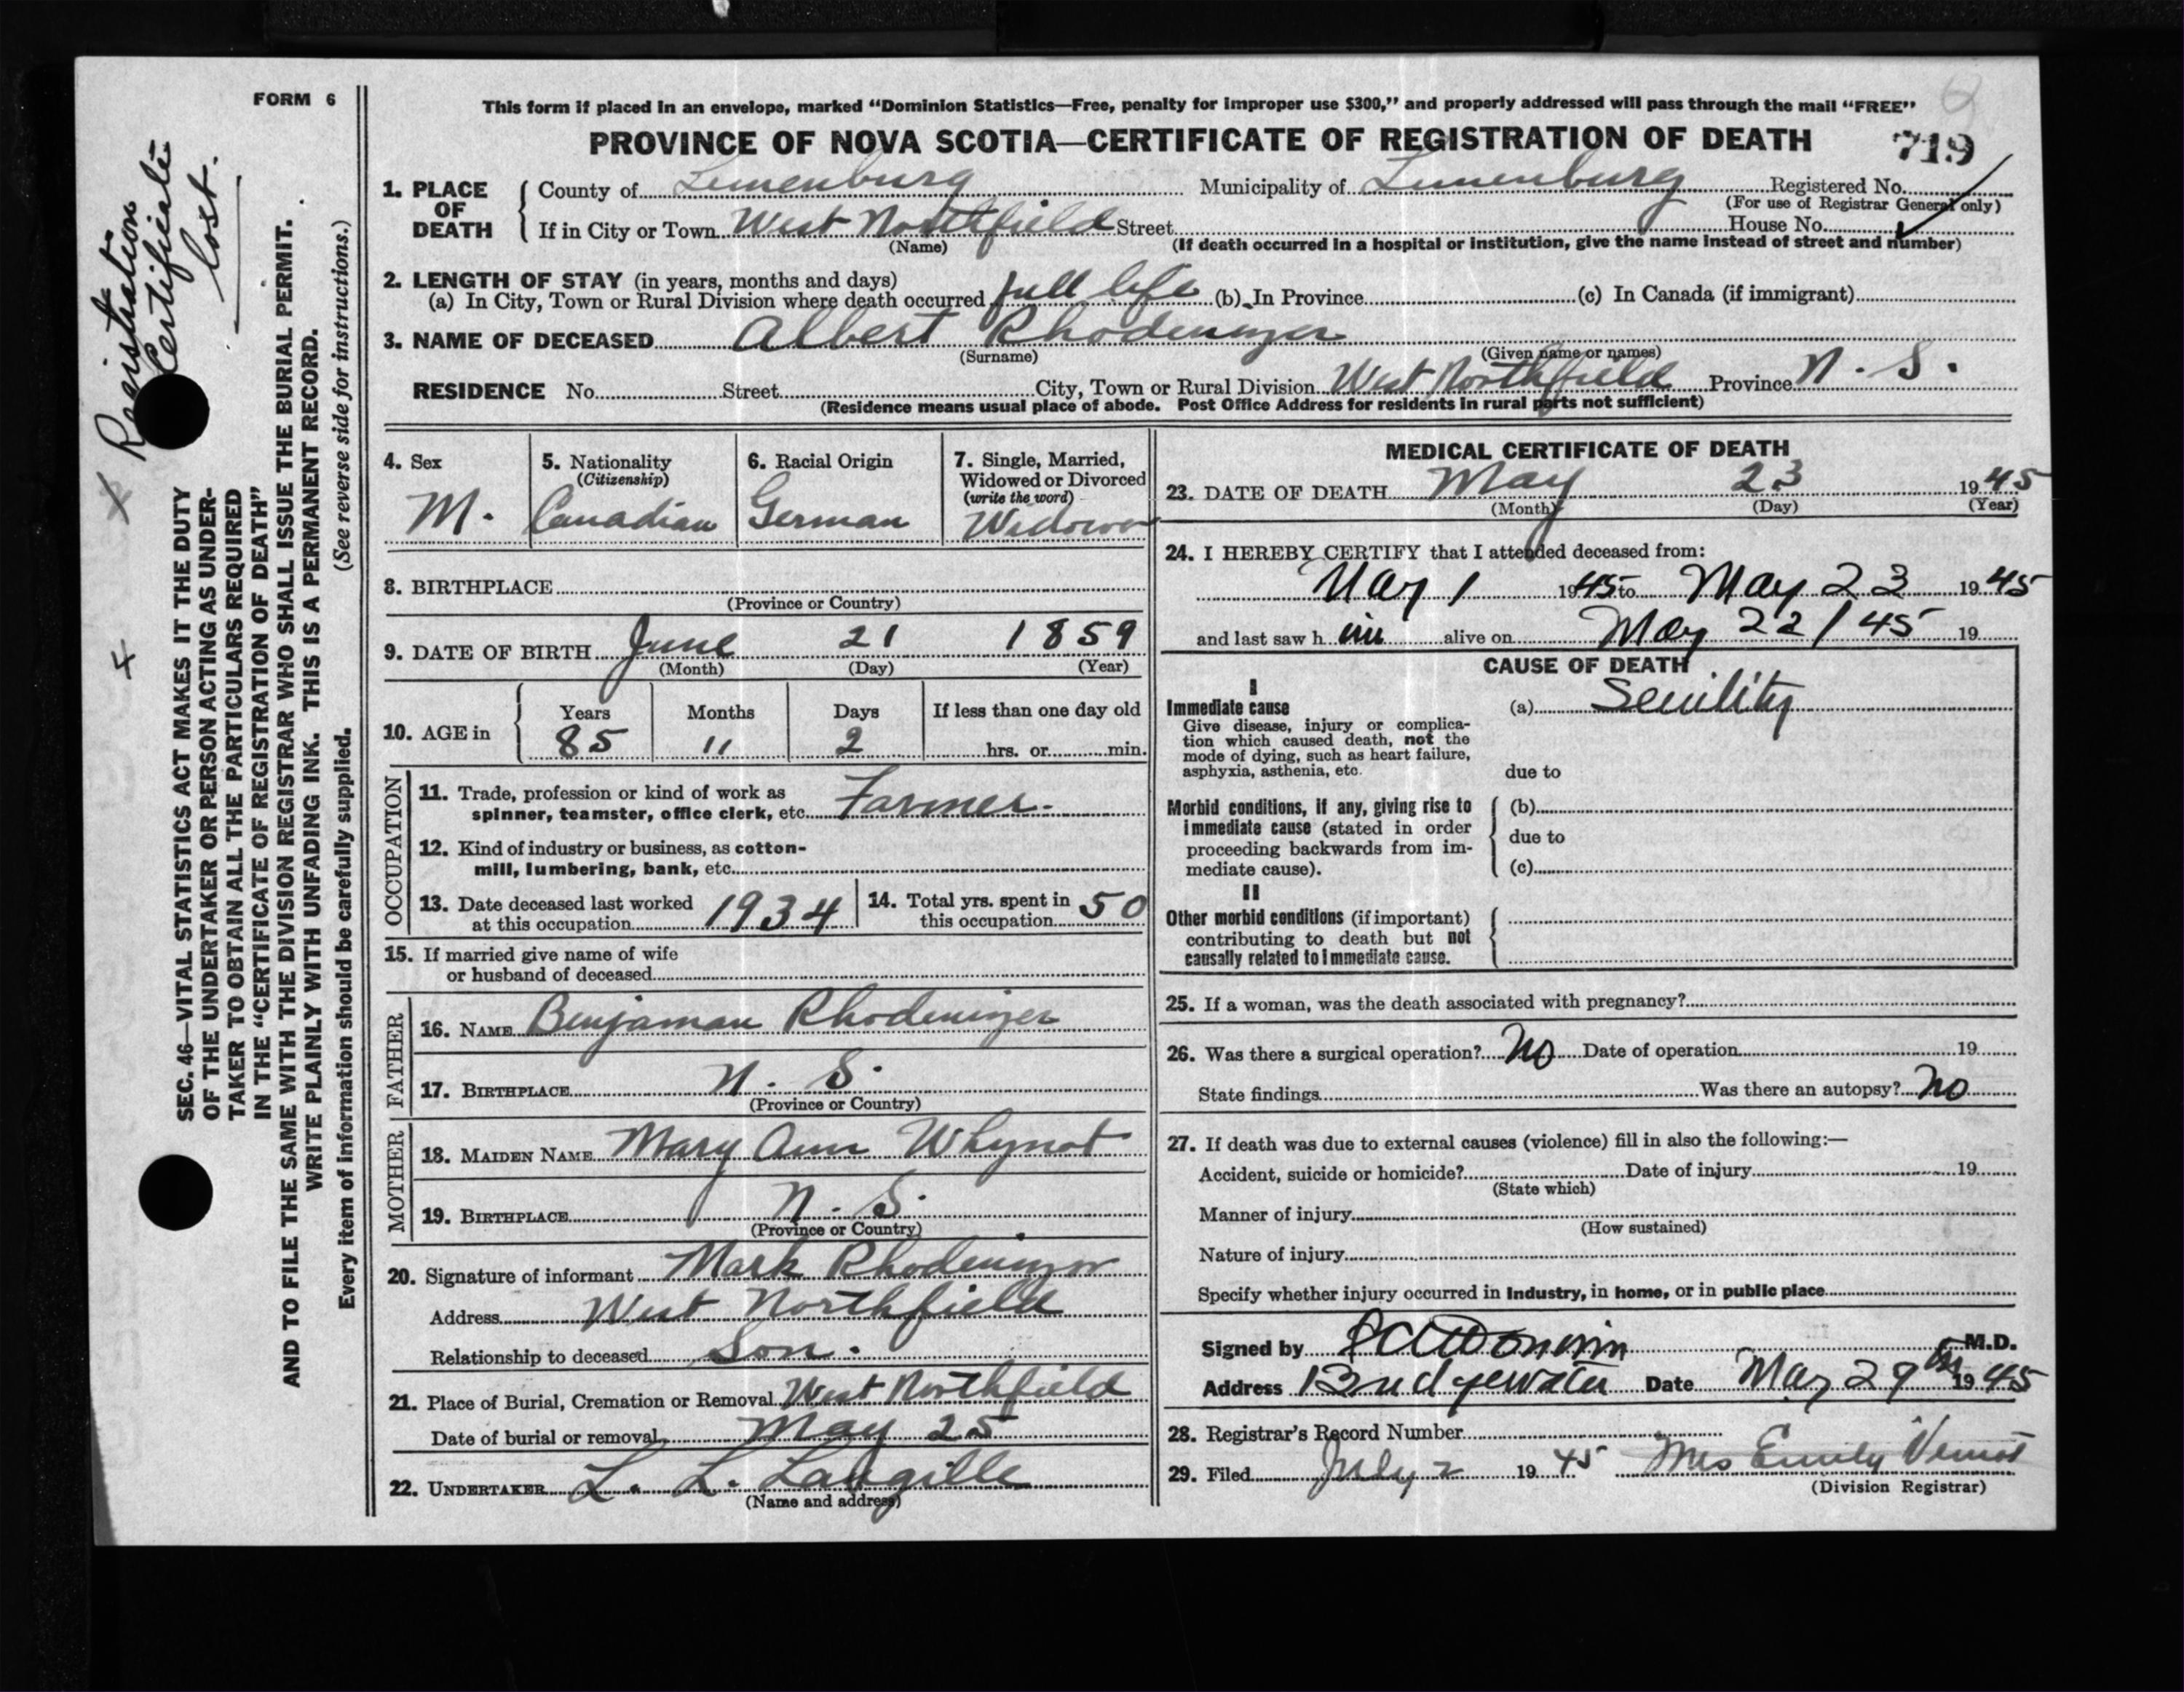 FORM 6
This form if placed in an envelope, marked “Dominion Statistics—Free, penalty for improper use $300,” and properly addressed will pass through the mail “FREE”
PROVINCE OF NOVA SCOTIA—CERTIFICATE OF REGISTRATION OF DEATH
719
1. PLACE OF DEATH
County of Lunenburg Municipality of Lunenburg Registered No.
(For use of Registrar General only)
If in City or Town West Northfield Street House No.
(Name) (If death occurred in a hospital or institution, give the name instead of street and number)
2. LENGTH OF STAY (in years, months and days)
(a) In City, Town or Rural Division where death occurred full life (b) In Province (c) In Canada (if immigrant)
3. NAME OF DECEASED Albert Rhodenizer
(Surname) (Given name or names)
RESIDENCE No. Street City, Town or Rural Division West Northfield Province N. S.
(Residence means usual place of abode. Post Office Address for residents in rural parts not sufficient)
4. Sex
M.
5. Nationality
(Citizenship)
Canadian
6. Racial Origin
German
7. Single, Married,
Widowed or Divorced
(write the word)
Widower
8. BIRTHPLACE
(Province or Country)
9. DATE OF BIRTH June 21 1859
(Month) (Day) (Year)
10. AGE in
Years Months Days If less than one day old
85 11 2 hrs. or min.
OCCUPATION
11. Trade, profession or kind of work as
spinner, teamster, office clerk, etc. Farmer.
12. Kind of industry or business, as cotton-
mill, lumbering, bank, etc.
13. Date deceased last worked
at this occupation 1934
14. Total yrs. spent in
this occupation 50
15. If married give name of wife
or husband of deceased
FATHER
16. NAME Benjaman Rhodenizer
17. BIRTHPLACE N. S.
(Province or Country)
MOTHER
18. MAIDEN NAME Mary Ann Whynot
19. BIRTHPLACE N. S.
(Province or Country)
20. Signature of informant Mark Rhodenizer
Address West Northfield
Relationship to deceased Son.
21. Place of Burial, Cremation or Removal West Northfield
Date of burial or removal May 25
22. UNDERTAKER L. L. Langille
(Name and address)
MEDICAL CERTIFICATE OF DEATH
23. DATE OF DEATH May 23 1945
(Month) (Day) (Year)
24. I HEREBY CERTIFY that I attended deceased from:
May 1 1945 to May 23 1945
and last saw h im alive on May 22/45 19
CAUSE OF DEATH
I
Immediate cause
(a) Senility
Give disease, injury or complica-
tion which caused death, not the
mode of dying, such as heart failure,
asphyxia, asthenia, etc.
due to
Morbid conditions, if any, giving rise to
immediate cause (stated in order
proceeding backwards from im-
mediate cause).
(b)
due to
(c)
II
Other morbid conditions (if important)
contributing to death but not
causally related to immediate cause.
25. If a woman, was the death associated with pregnancy?
26. Was there a surgical operation? No Date of operation 19
State findings Was there an autopsy? No
27. If death was due to external causes (violence) fill in also the following:—
Accident, suicide or homicide? Date of injury 19
(State which)
Manner of injury
(How sustained)
Nature of injury
Specify whether injury occurred in Industry, in home, or in public place
Signed by M.D.
Address Bridgewater Date May 29th 1945
28. Registrar's Record Number
29. Filed July 2 1945 Mrs Emily
(Division Registrar)
Registration
Certificate
lost.
SEC. 46—VITAL STATISTICS ACT MAKES IT THE DUTY
OF THE UNDERTAKER OR PERSON ACTING AS UNDER-
TAKER TO OBTAIN ALL THE PARTICULARS REQUIRED
IN THE “CERTIFICATE OF REGISTRATION OF DEATH”
AND TO FILE THE SAME WITH THE DIVISION REGISTRAR WHO SHALL ISSUE THE BURIAL PERMIT.
WRITE PLAINLY WITH UNFADING INK. THIS IS A PERMANENT RECORD.
Every item of information should be carefully supplied. (See reverse side for instructions.)